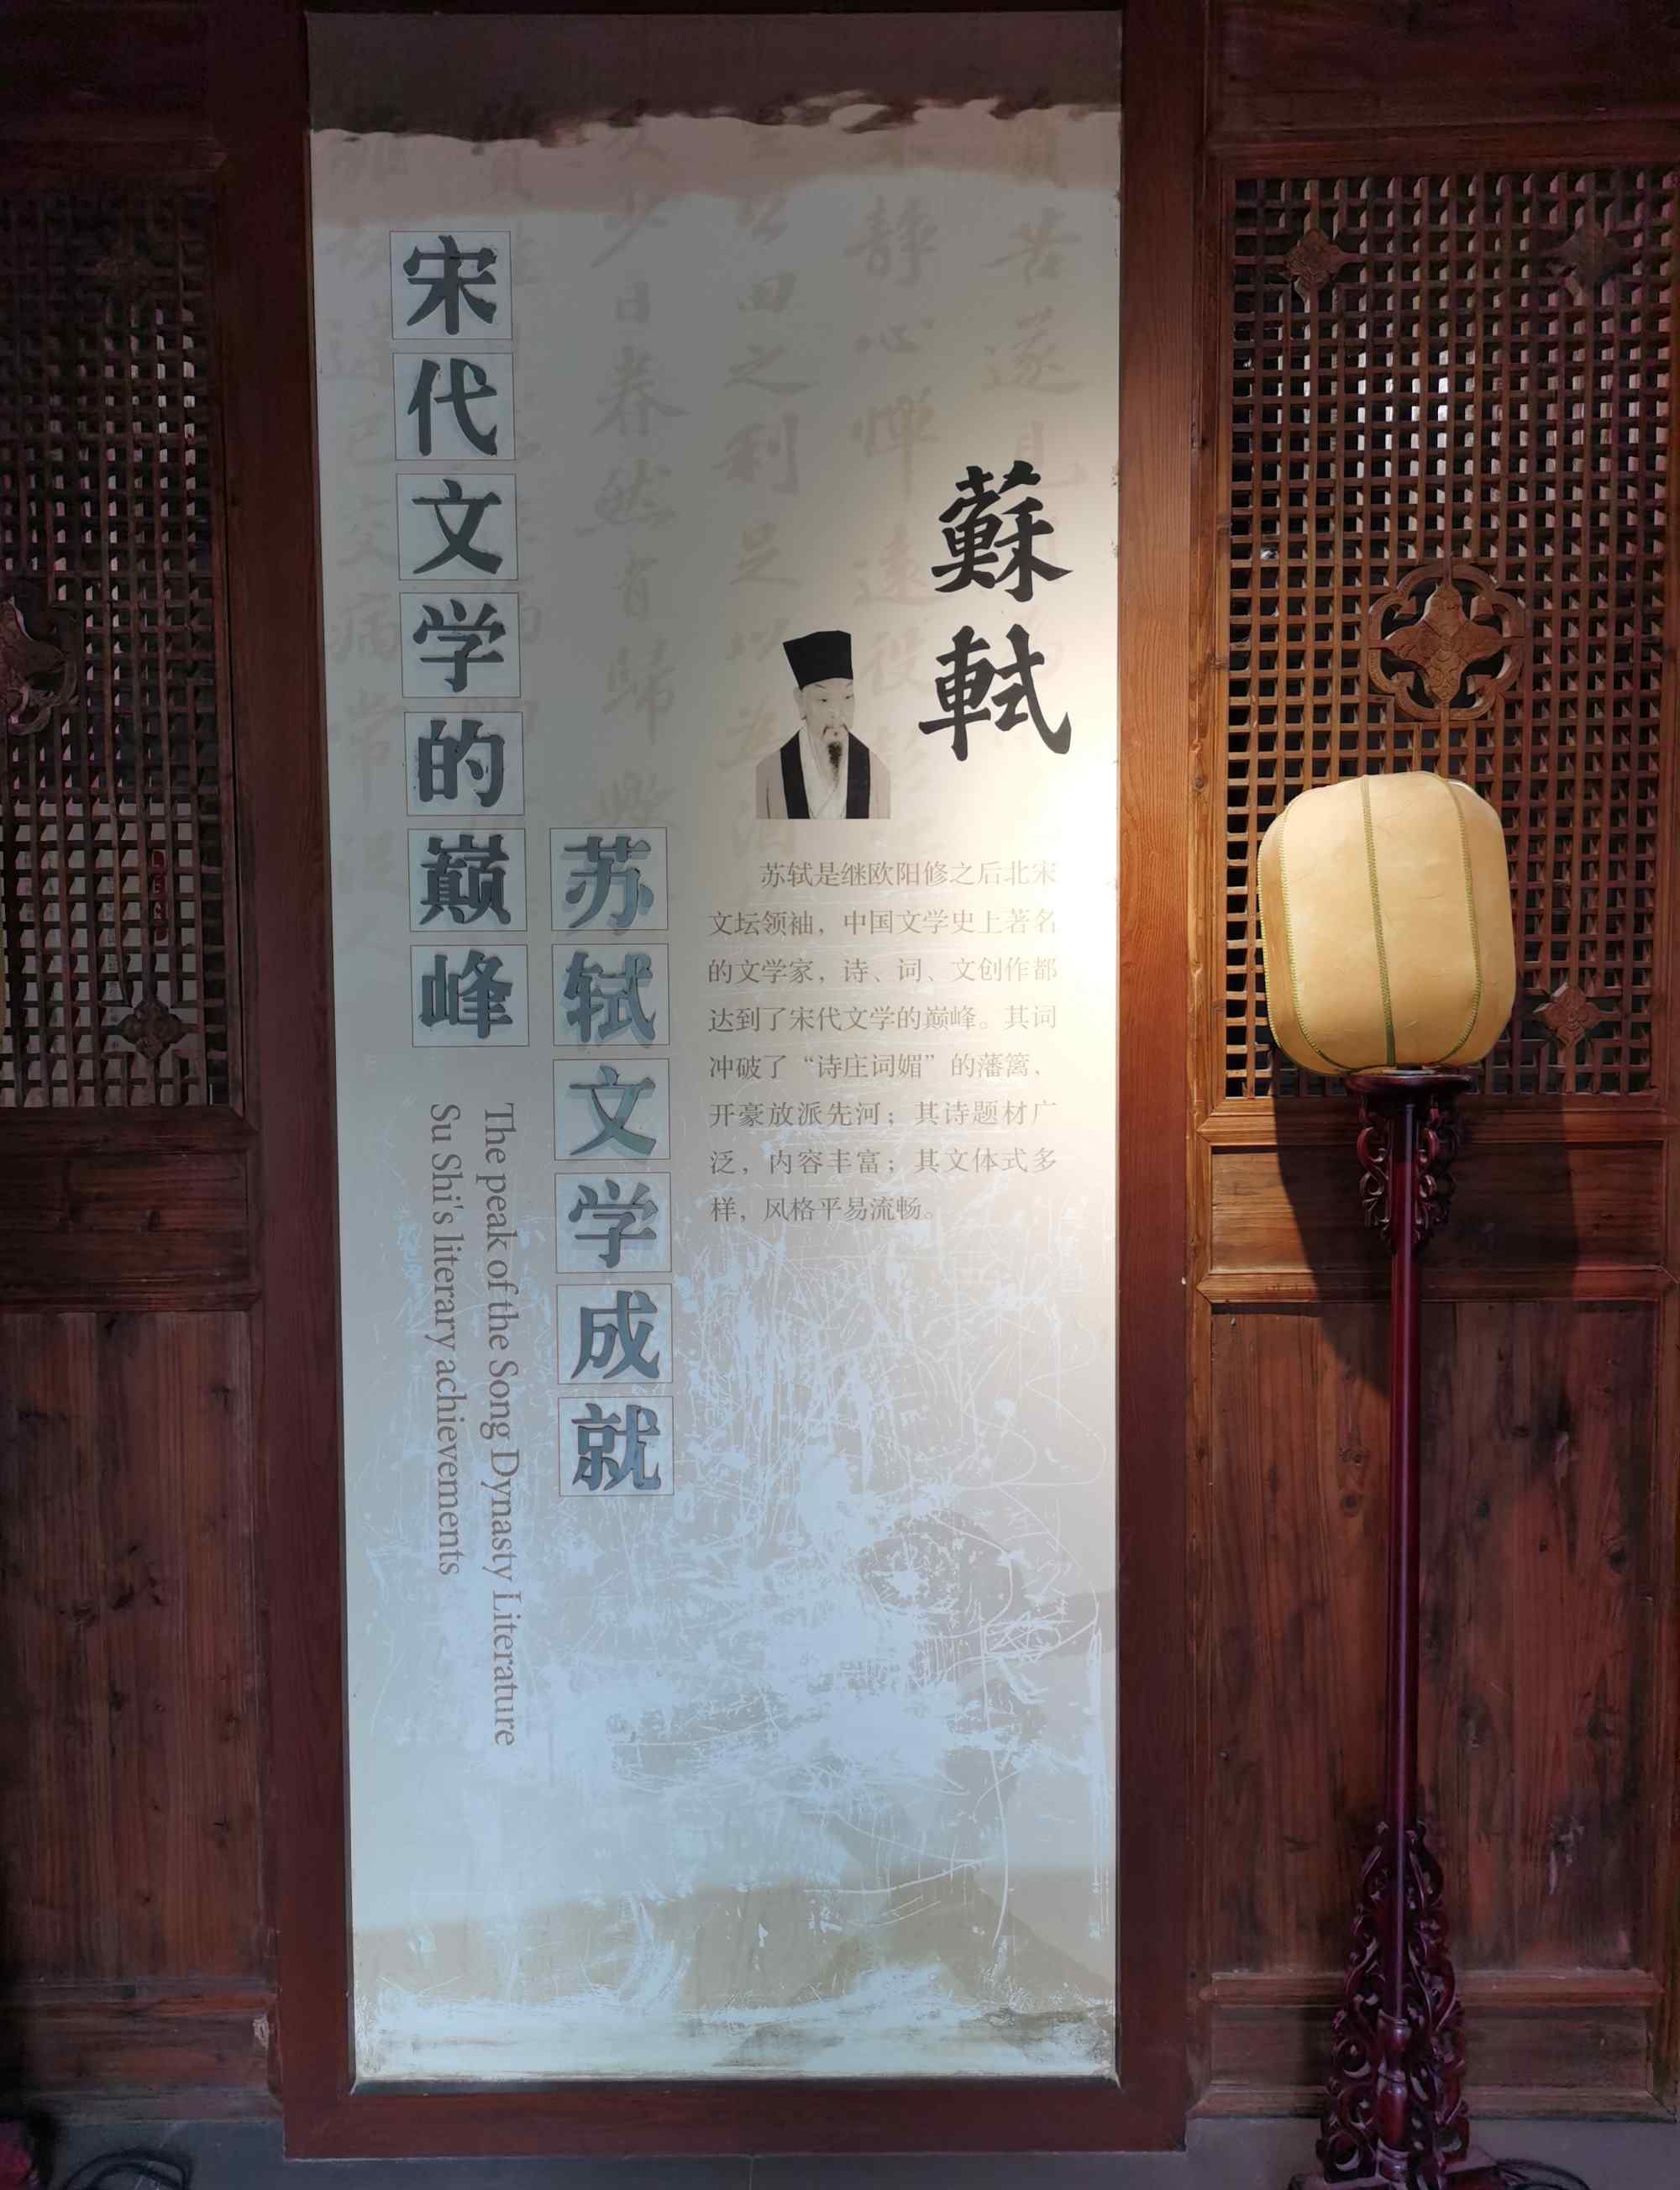 宋代文学的巅峰
苏轼文学成就
The peak of the Song Dynasty Literature
Su Shi's literary achievements
蘇軾
苏轼是继欧阳修之后北宋
文坛领袖，中国文学史上著名
的文学家，诗、词、文创作都
达到了宋代文学的巅峰。其词
冲破了“诗庄词媚”的藩篱，
开豪放派先河；其诗题材广
泛，内容丰富；其文体式多
样，风格平易流畅。